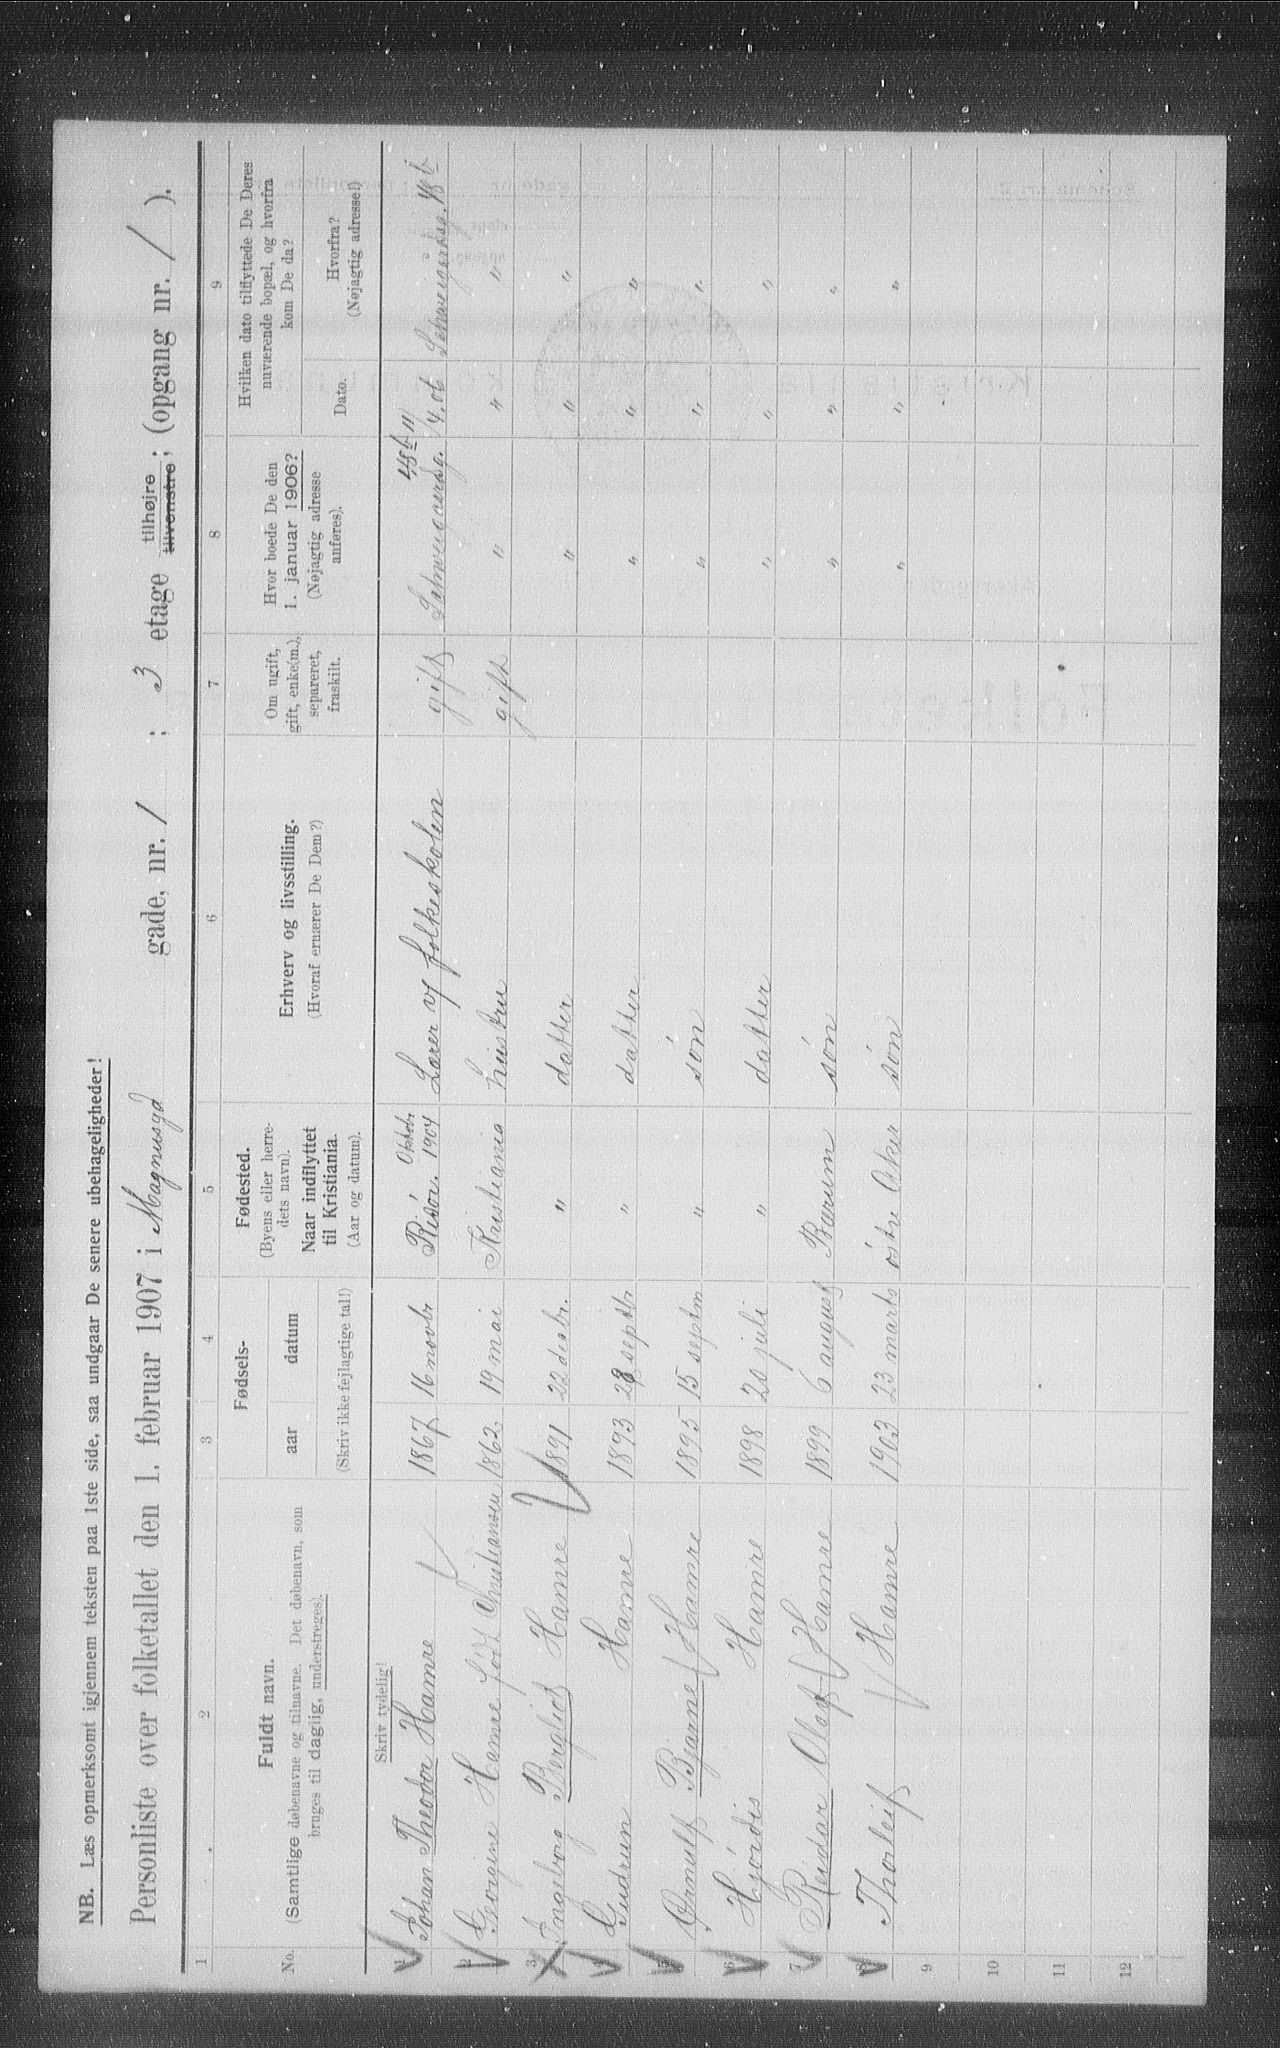 NB. Læs opmerksomt igjennem teksten paa 1ste side, saa undgaar De senere ubehageligheder!
Personliste over folketallet den 1. februar 1907 i Magnusgd gade, nr. 1 ; 3 etage tilhøjre tilvenstre; (opgang nr. / ).
1 2 3 4 5 6 7 8 9
No.
Fuldt navn.
(Samtlige døbenavne og tilnavne. Det døbenavn, som
bruges til daglig, understreges).
Fødsels-
aar datum
(Skriv ikke fejlagtige tal!)
Fødested.
(Byens eller herre-
dets navn).
Naar indflyttet
til Kristiania.
(Aar og datum).
Erhverv og livsstilling.
(Hvoraf ernærer De Dem?)
Om ugift,
gift, enke(m.),
separeret,
fraskilt.
Hvor boede De den
1. januar 1906?
(Nøjagtig adresse
anføres).
Hvilken dato tilflyttede De Deres
nuværende bopæl, og hvorfra
kom De da?
Dato.
Hvorfra?
(Nøjagtig adresse!)
Skriv tydelig!
1 Johan Theodor Hamre 1867 16 novbr Risör. Oktobr 1904 Lærer v/ folkeskolen gift Schweigaardsg. 48b 11/4.06 Schweigardsg. 48b
2 Georgine Hamre född Christiansen 1862 19 mai Kristiania hustru gift " " "
3 Ingeborg Bergliot Hamre 1891 22 desbr. " datter " " "
4 Gudrun Hamre 1893 28 septbr " datter " " "
5 Ørnulf Bjarne Hamre 1895 15 septm " són " " "
6 Hjördis Hamre 1898 20 juli " datter " " "
7 Reidar Olaf Hamre 1899 6 august Bærum són " " "
8 Thorleif Hamre 1903 23 marts östre Aker són " " "
9
10
11
12